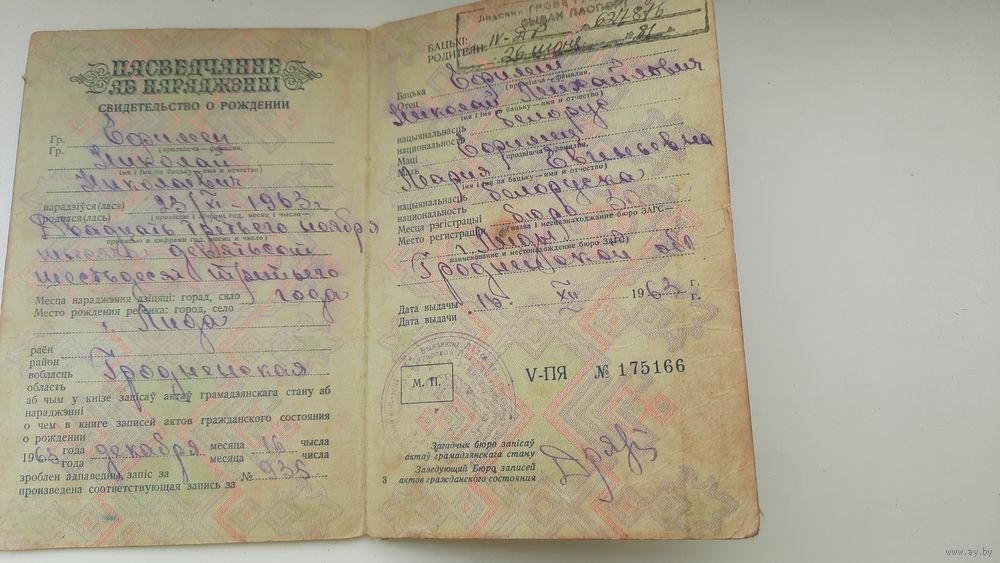 ПАСВЕДЧАННЕ
АБ НАРАДЖЭННІ
СВИДЕТЕЛЬСТВО О РОЖДЕНИИ
Гр.
Гр.
(прозвішча — фамилия,
Николай
імя і імя па бацьку — имя и отчество)
Николаевич
нарадзіўся(лася) 23/XI - 1963 г
родился(лась) (прописью і лічбамі год, месяц і чысло —
Двадцать третьего ноября
прописью и цифрами год, месяц и число)
тысяча девятьсот
шестьдесят третьего
Месца нараджэння дзіцяці: горад, сяло года
Место рождения ребенка: город, село
г. Лида
раён
район
вобласць Гродненская
область
аб чым у кнізе запісаў актаў грамадзянскага стану аб
нараджэнні
о чем в книге записей актов гражданского состояния
о рождении
1963 года декабря месяца 16 чысла
года месяца числа
зроблен адпаведны запіс за № 935
произведена соответствующая запись за
Лидским
ВЫДАН ПАСПОРТ
IV-ДР 627876
26 июня 81
БАЦЬКІ:
РОДИТЕЛИ:
Бацька
Отец (прозвішча — фамилия,
Николай Михайлович
імя і імя па бацьку — имя и отчество)
нацыянальнасць белорус
национальность
Маці
Мать (прозвішча — фамилия,
Мария
імя і імя па бацьку — имя и отчество)
нацыянальнасць белоруска
национальность
Месца рэгістрацыі бюро
Место регистрации (назва і месцазнаходжанне бюро ЗАГС —
г. Лиды
наименование и местонахождение бюро ЗАГС)
Гродненской обл
Дата выдачы 16. XII 1963 г.
Дата выдачи г.
М. П.
V-ПЯ № 175166
Загадчык бюро запісаў
актаў грамадзянскага стану
Заведующий Бюро записей
актов гражданского состояния
3
www.ay.by